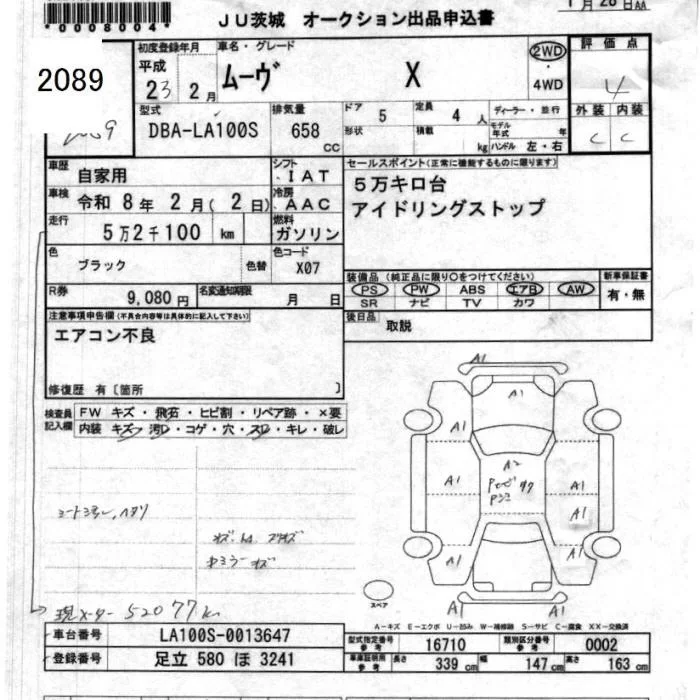 *0008004*
JU茨城 オークション出品申込書
1月28日AA
2089
初度登録年月
平成
23 2月
車名・グレード
ムーヴ X
2WD
・
4WD
評価点
4
外装 内装
C C
型式
DBA-LA100S
排気量
658
cc
ドア
5
定員
4人
形状
積載
kg
ディーラー・並行
モデル年式 年
ハンドル 左・右
車歴
自家用
シフト
IAT
車検
令和 8年 2月( 2日)
冷房
AAC
走行
5万2千100 km
燃料
ガソリン
色
ブラック
色替
色コード
X07
R券
9,080円
名変通知期限
月 日
セールスポイント(正常に機能するものに限ります)
5万キロ台
アイドリングストップ
装備品(純正品に限り○をつけてください)
PS PW ABS エアB AW
SR ナビ TV カワ
新車保証書
有・無
後日品
取説
注意事項申告欄(不具合内容等は具体的に記入して下さい)
エアコン不良
修復歴 有〔箇所 〕
検査員
記入欄
FW キズ・飛石・ヒビ割・リペア跡・×要
内装 キズ・汚レ・コゲ・穴・スレ・キレ・破レ
A1
A1
A1
A1
A1
A2
A1
A1
A1
A1
A1
A1
A1
スペア
現メーター 52077km
A-キズ E-エクボ U-凹み W-補修跡 S-サビ C-腐食 XX-交換済
車台番号
LA100S-0013647
登録番号
足立 580 ほ 3241
型式指定番号
参考
16710
類別区分番号
参考
0002
車庫証明用
参考
長さ
339 cm
幅
147 cm
高さ
163 cm